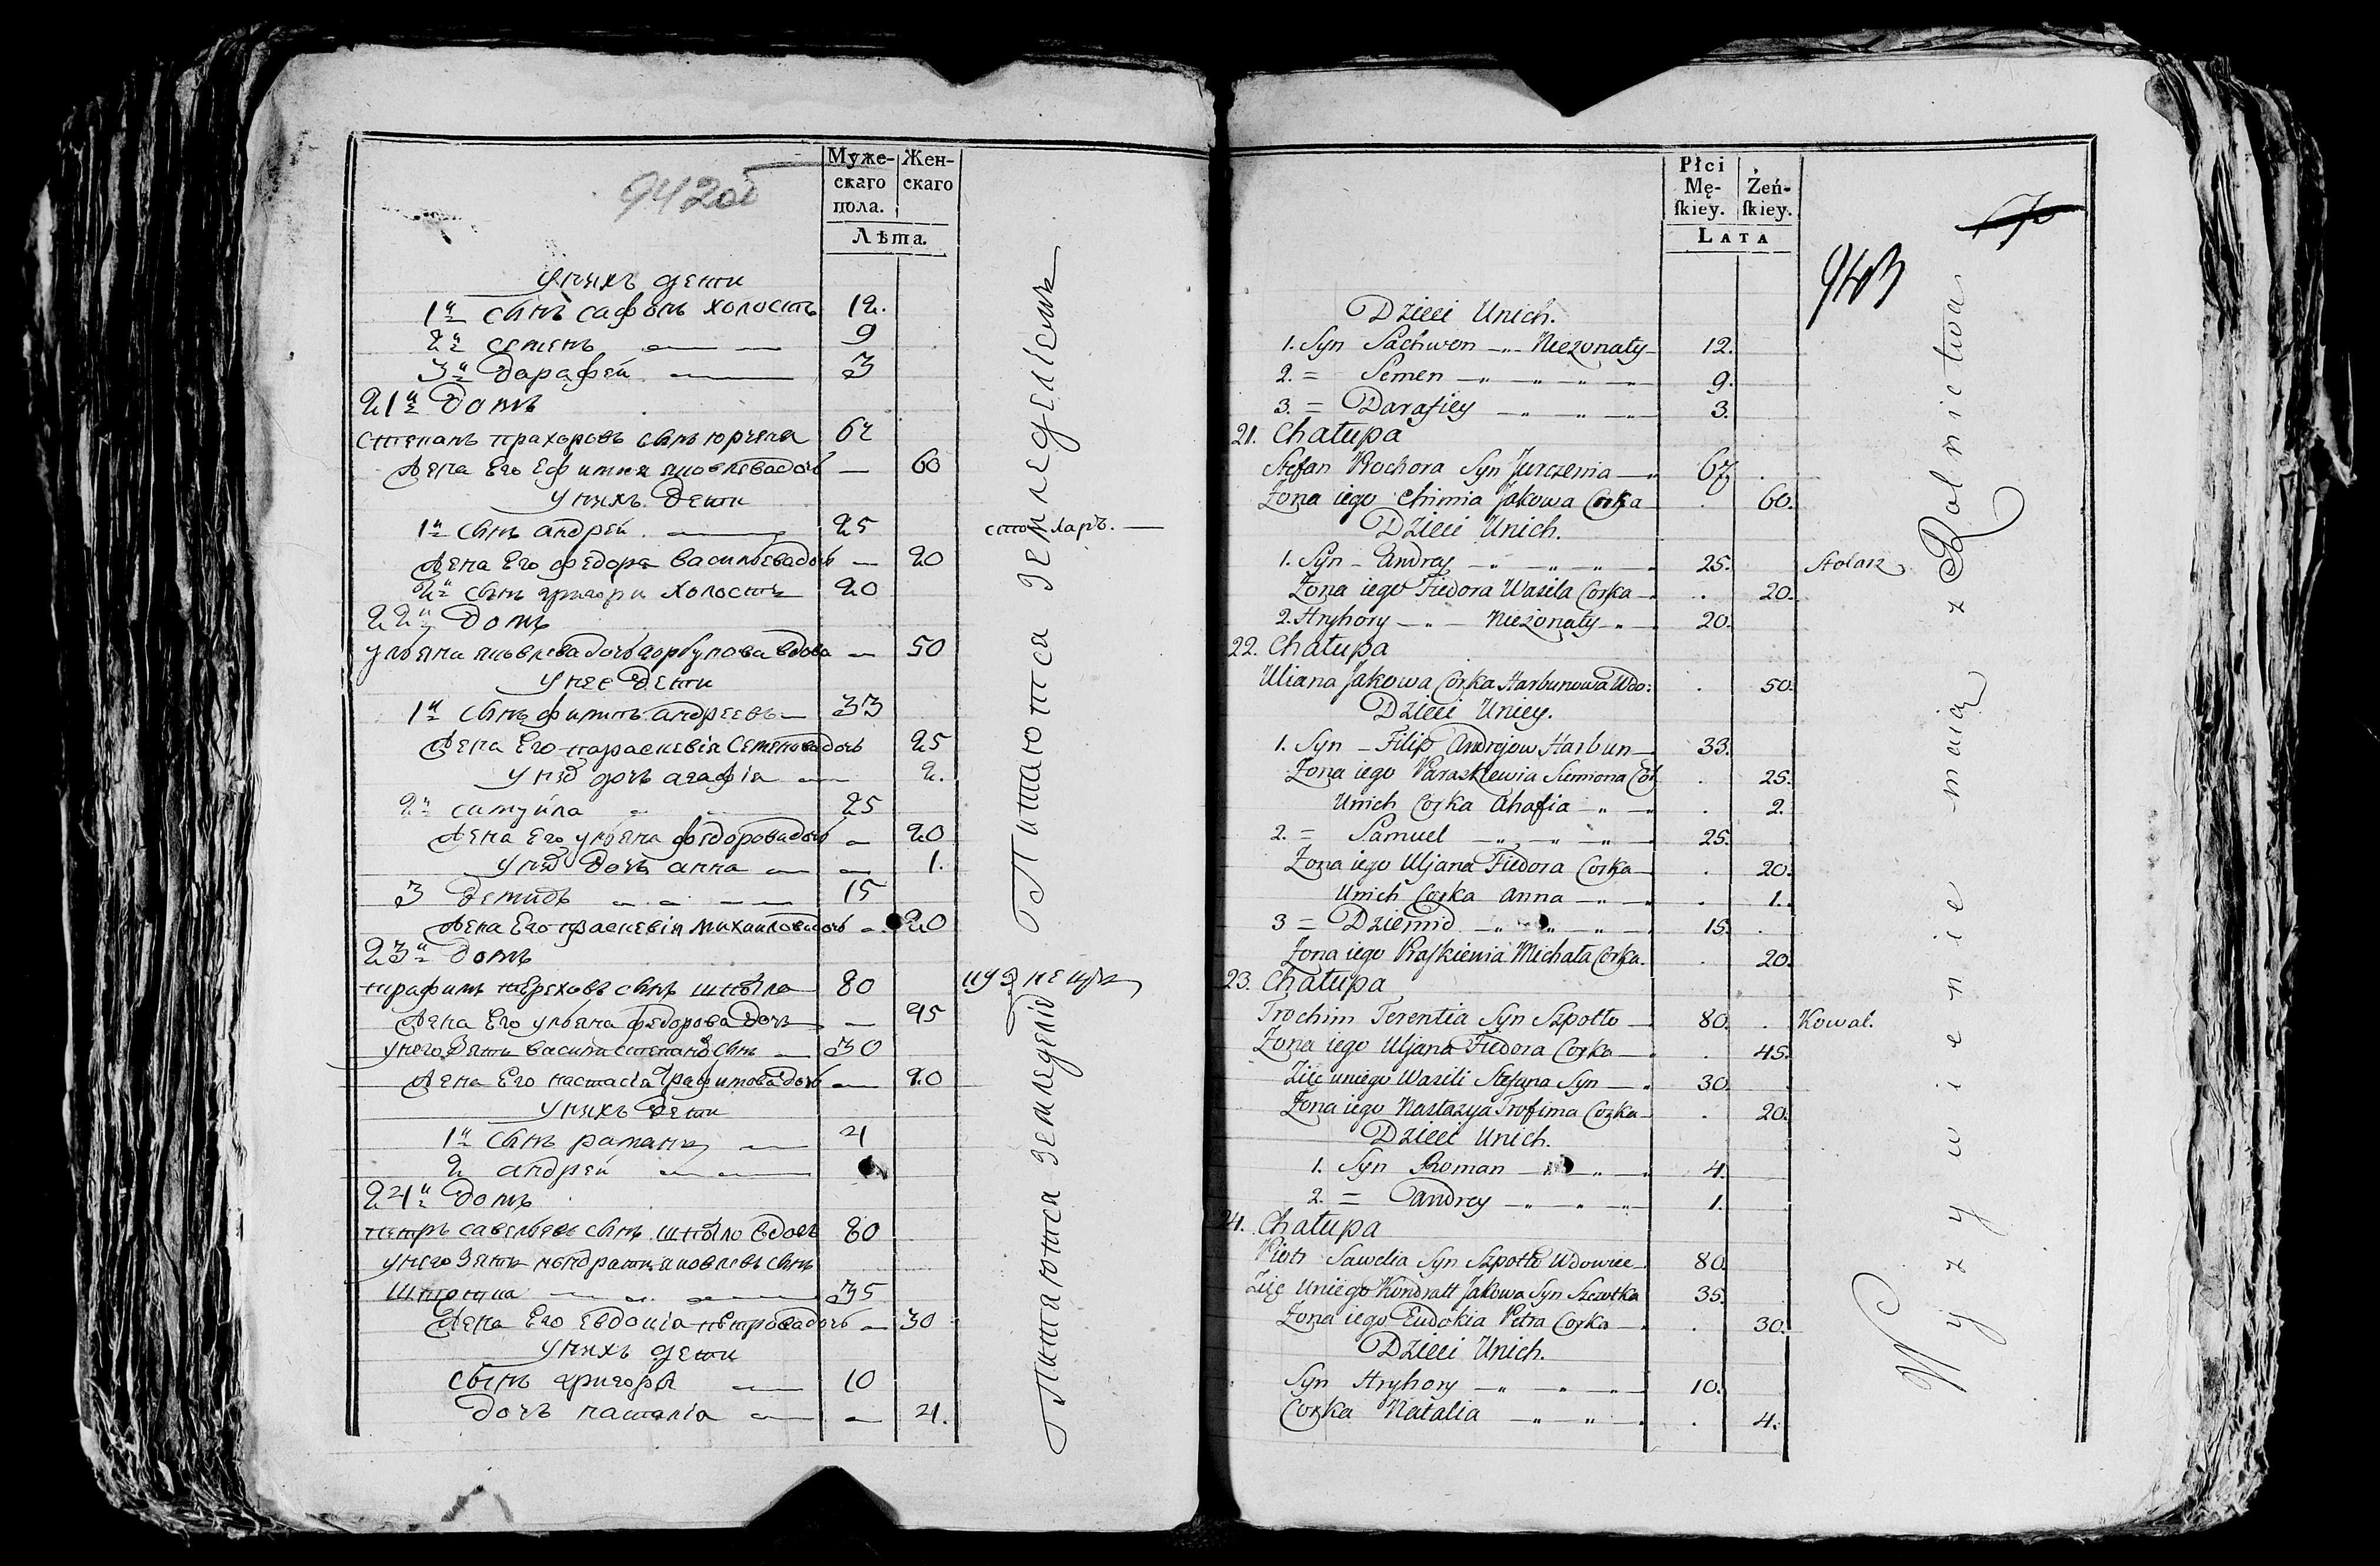 942об
Муже-
скаго
пола.
Жен-
скаго
Лѣта.
у нихъ дети
1й сынъ сафонъ холостъ 12.
2й семенъ 9
3й дарафей 3
21й домъ
степанъ прахоровъ сынъ юрченя 67
жена его ефимия яковлева дочь — 60
у нихъ дети
1й сынъ андрей 25 столяръ.
жена его федора васильева дочь — 20
2й сынъ григори холостъ 20
22й домъ
ульяна яковлева дочь горбунова вдова — 50
у нее дети
1й сынъ филипъ андреевъ 33
жена его параскевія семенова дочь 25
у нихъ дочь агафія 2.
2й самуйла 25
жена его ульяна федорова дочь — 20
у нихъ дочь анна 1.
3 демидъ 15
жена его праскевія михайлова дочь 20
23й домъ
трафимъ тереховъ сынъ шпыло 80 кузнецъ
жена его ульяна федорова дочь — 45
у него зять василь степановъ сынъ 30
жена его настасія трафимова дочь 20
у нихъ дети
1й сынъ раманъ 4
2 андрей
24й домъ
петръ савельевъ сынъ шпыло вдовъ 80
у него зять кондратъ яковлевъ сынъ
35
жена его евдокія петрова дочь 30
у нихъ дети
сынъ григоры 10
дочь наталія 4.
Питаются земледеліемъ
Питаются земледеліе
Płci
Mę-
ſkiey.
Żeń-
ſkiey.
LATA
943
Dzieci Unich.
1. Syn Sachwon Niezonaty 12.
2. = Semen 9.
3. = Darafiey 3.
21. Chałupa
Stefan Prochora Syn Jurczenia 67.
Żona iego Chimia Jakowa Corka 60.
Dzieci Unich.
1. Syn Andrey 25. Stolarz
Żona iego Fiedora Wasila Corka 20.
2. Hryhory Nieżonaty 20.
22. Chałupa
Uliana Jakowa Corka Harbunowa Wdo: 50.
Dzieci Uniey.
1. Syn Filip Andrejow Harbun 33.
Żona iego Paraskiewia Siemiona Cor 25.
Unich Corka Ahafia 2.
2. = Samuel 25.
Żona iego Uljana Fiedora Corka 20.
Unich Corka Anna 1.
3 = Dziemid 15.
Żona iego Praſkiewia Michała Corka. 20.
23. Chałupa
Trochim Terentia Syn Szpołło 80. Kowal.
Żona iego Uljana Fiedora Corka 45.
Zięc uniego Wasili Stefana Syn 30.
Żona iego Nastazya Trofima Corka 20.
Dzieci Unich.
1. Syn Roman 4.
2. = Andrey 1.
24. Chałupa
Piotr Sawelia Syn Szpołło Wdowiec 80.
Zięc Uniego Kondratt Jakowa Syn Szczotka 35.
Żona iego Eudokia Petra Corka 30.
Dzieci Unich.
Syn Hryhory 10.
Corka Natalia 4.
Wyzywienie maią z Rolnictwa